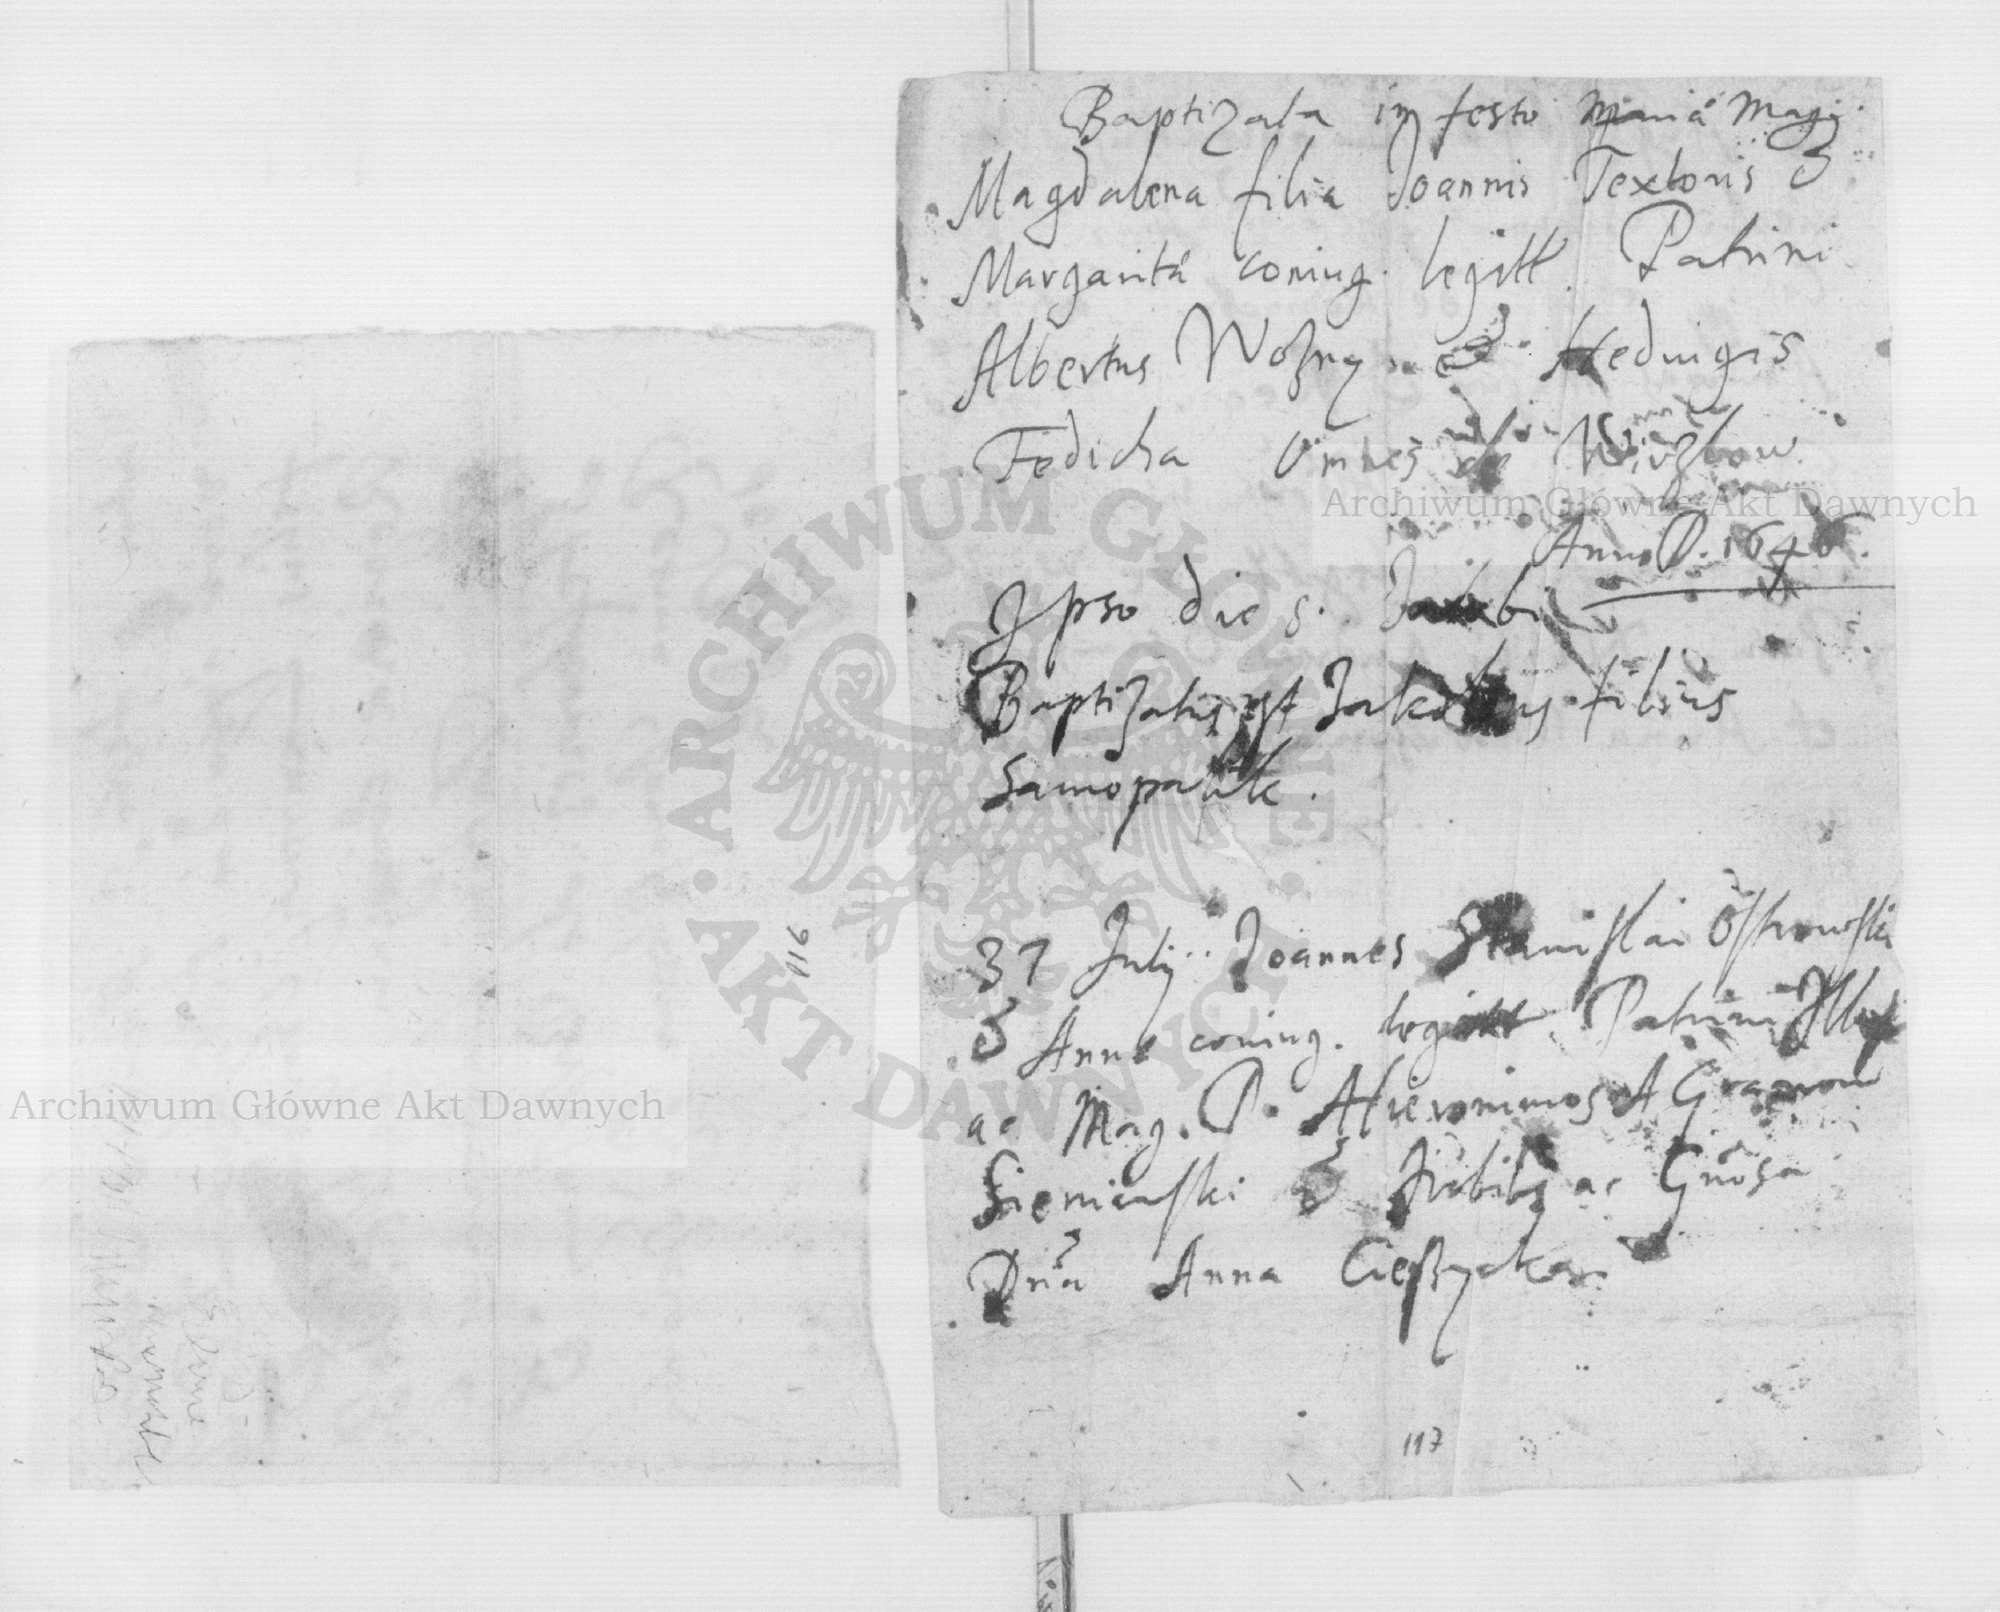 116
Baptizata in festo Mariæ Mag:
Magdalena filia Joannis Textoris &
Margaritæ coniug. legitt. Patrini
Albertus Wozny & Hedvigis
Fedicha Omnes de Wirzbow
Anno D. 1646.
Ipso die S. Jakobi
Baptizatus est Jakobus filius
Samopalik.
31 July Joannes Stanislai Ostrowski
& Anna coniug. legitt. Patrini Illus
ac Mag. D. Hieronimos A Granow
Sieniawski & Nobilis ac Gnosa
Dna Anna Cieszycka
117
Archiwum Główne Akt Dawnych
Archiwum Główne Akt Dawnych
ARCHIWUM GŁÓWNE AKT DAWNYCH